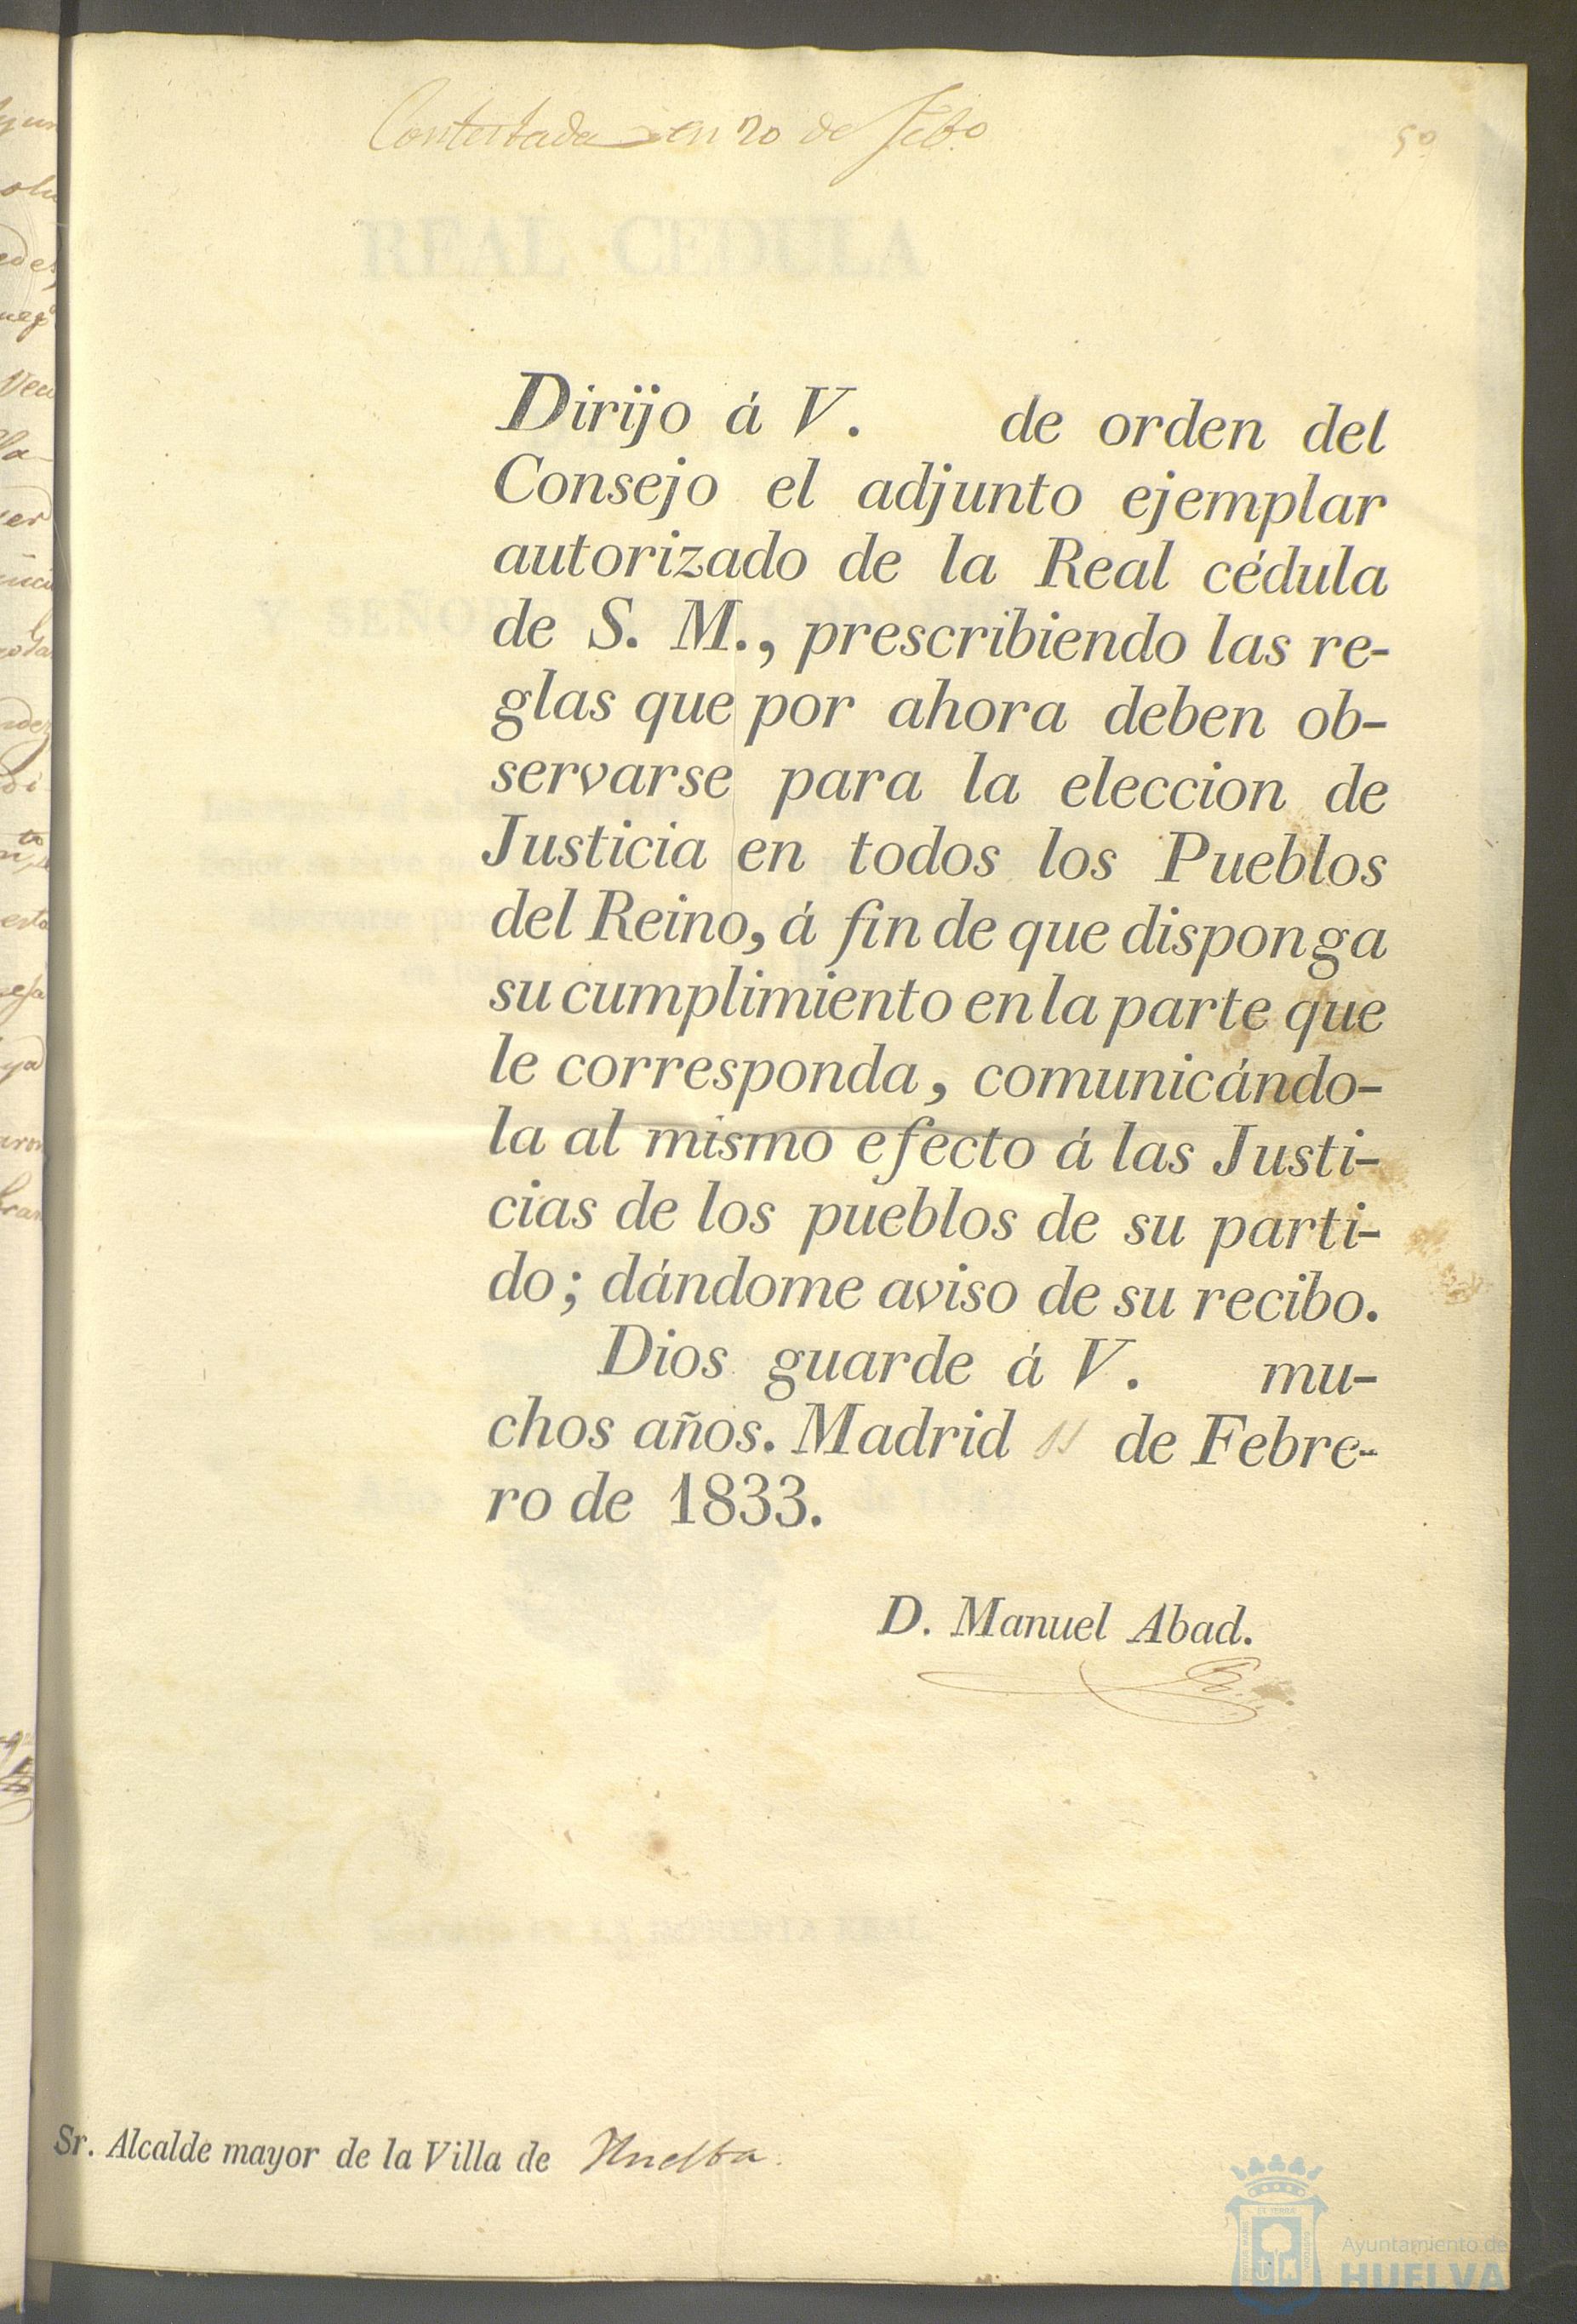 Contestada en 20 de Feb.o
50
REAL CEDULA
Dirijo á V. de orden del
Consejo el adjunto ejemplar
autorizado de la Real cédula
de S. M., prescribiendo las re-
glas que por ahora deben ob-
servarse para la eleccion de
Justicia en todos los Pueblos
del Reino, á fin de que disponga
su cumplimiento en la parte que
le corresponda, comunicándo-
la al mismo efecto á las Justi-
cias de los pueblos de su parti-
do; dándome aviso de su recibo.
Dios guarde á V. mu-
chos años. Madrid 11 de Febre-
ro de 1833.
D. Manuel Abad.
Sr. Alcalde mayor de la Villa de Huelba.
Ayuntamiento de
HUELVA